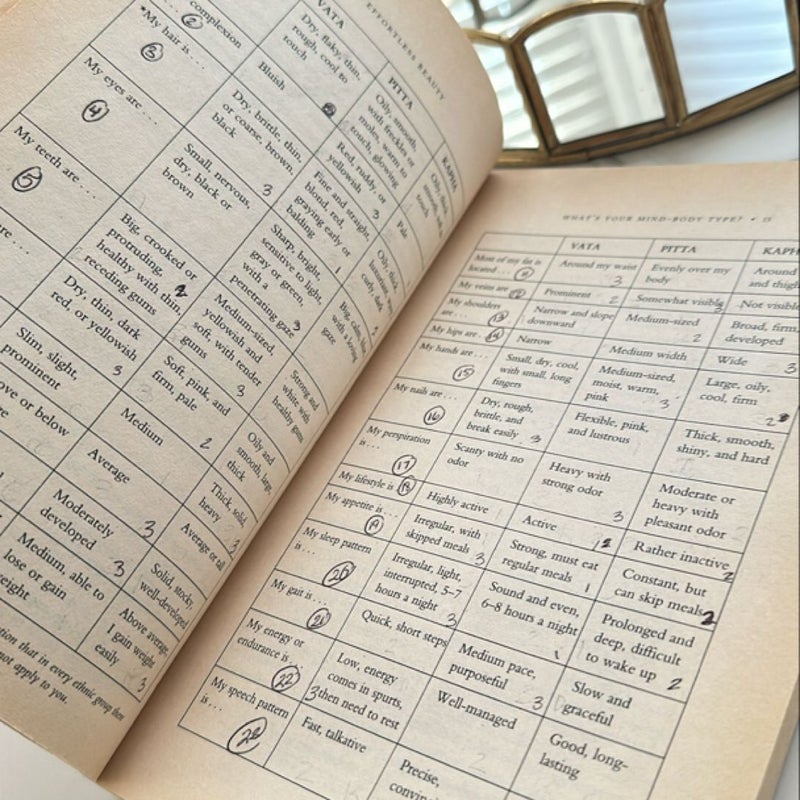 EFFORTLESS BEAUTY
VATA
PITTA
KAPHA
complexion
2
Dry, flaky, thin,
rough, cool to
touch
Oily, smooth,
with freckles or
moles, warm to
touch, glowing
Bluish
Red, ruddy, or
yellowish
3
Pale
*My hair is . . . .
3
Dry, brittle thin,
or coarse, brown,
black
3
Fine and straight,
blond, red,
graying early or
balding
1
My eyes are . . . .
4
Small, nervous,
dry, black or
brown
Sharp, bright,
sensitive to light,
gray or green,
with a
penetrating gaze
3
Big, calm,
with a loving
gaze
My teeth are . . . .
5
Big, crooked or
protruding,
healthy with thin,
receding gums
2
Medium-sized,
yellowish and
soft, with tender
gums
3
Strong and
white, with
healthy gums
Dry, thin, dark
red, or yellowish
3
Soft, pink, and
firm, pale
2
Oily and
smooth, large,
thick
Slim, slight,
prominent
Medium
Thick, solid,
heavy
ove or below
Average
Average or tall
Moderately
developed
3
Solid, stocky,
well-developed
Medium, able to
lose or gain
weight
3
Above average,
I gain weight
easily
3
tion that in every ethnic group
not apply to you.
WHAT'S YOUR MIND-BODY TYPE? • 15
VATA
PITTA
KAPH
Most of my fat is
located . . . .
11
Around my waist
3
Evenly over my
body
Around
and thigh
My veins are
12
Prominent
2
Somewhat visible
3
Not visible
My shoulders
are . . .
13
Narrow and slope
downward
Medium-sized
2
Broad, firm,
developed
My hips are . .
14
Narrow
Medium width
Wide
3
My hands are . . .
15
Small, dry, cool,
with small, long
fingers
Medium-sized,
moist, warm,
pink
3
Large, oily,
cool, firm
2
My nails are . . .
16
Dry, rough,
brittle, and
break easily
3
Flexible, pink,
and lustrous
Thick, smooth,
shiny, and hard
My perspiration
is . . .
17
Scanty with no
odor
Heavy with
strong odor
3
Moderate or
heavy with
pleasant odor
My lifestyle is
18
Highly active
Active
Rather inactive
2
My appetite is . . .
19
Irregular, with
skipped meals
3
Strong, must eat
regular meals
1
Constant, but
can skip meals
2
My sleep pattern
is . . .
20
Irregular, light,
interrupted, 5–7
hours a night
3
Sound and even,
6–8 hours a night
1
Prolonged and
deep, difficult
to wake up
2
My gait is . . .
21
Quick, short steps
Medium pace,
purposeful
3
Slow and
graceful
My energy or
endurance is . . .
22
Low, energy
comes in spurts,
then need to rest
3
Well-managed
Good, long-
lasting
My speech pattern
is . . .
Fast, talkative
Precise,